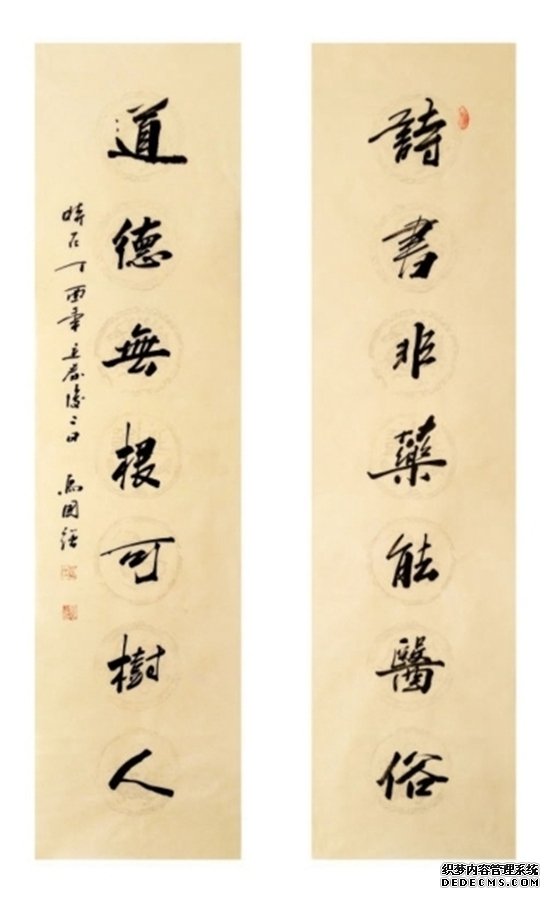 詩書非藥能醫俗
道德無根可樹人
時在丁酉年立春後三日
馬國強
织梦内容管理系统
DEDECMS.COM